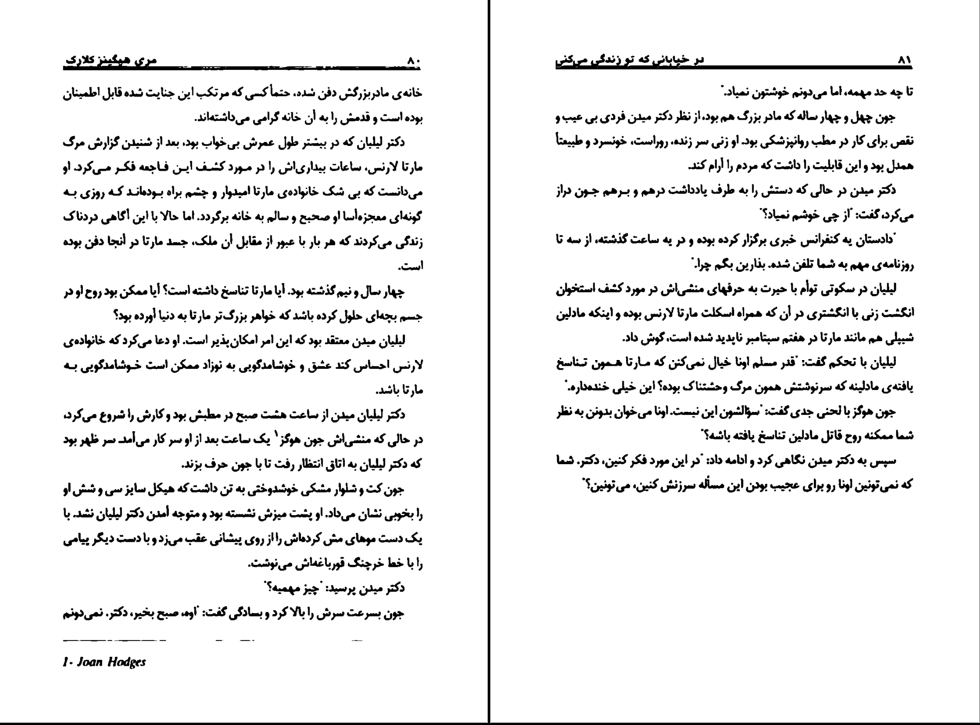 ۸۰ مری هیگینز کلارک
خانه‌ی مادربزرگش دفن شده، حتمأ کسی که مرتکب این جنایت شده قابل اطمینان
بوده است و قدمش را به آن خانه گرامی می‌داشته‌اند.
دکتر لیلیان که در بیشتر طول عمرش بی‌خواب بود، بعد از شنیدن گزارش مرگ
مارتا لارنس، ساعات بیداری‌اش را در مورد کشف این فاجعه فکر می‌کرد. او
می‌دانست که بی شک خانواده‌ی مارتا امیدوار و چشم براه بوده‌اند که روزی به
گونه‌ای معجزه‌آسا او صحیح و سالم به خانه برگردد. اما حالا با این آگاهی دردناک
زندگی می‌کردند که هر بار با عبور از مقابل آن ملک، جسد مارتا در آنجا دفن بوده
است.
چهار سال و نیم گذشته بود. آیا مارتا تناسخ داشته است؟ آیا ممکن بود روح او در
جسم بچه‌ای حلول کرده باشد که خواهر بزرگ‌تر مارتا به دنیا آورده بود؟
لیلیان میدن معتقد بود که این امر امکان‌پذیر است. او دعا می‌کرد که خانواده‌ی
لارنس احساس کند عشق و خوشامدگویی به نوزاد ممکن است خوشامدگویی به
مارتا باشد.
دکتر لیلیان میدن از ساعت هشت صبح در مطبش بود و کارش را شروع می‌کرد،
در حالی که منشی‌اش جون هوگز۱ یک ساعت بعد از او سر کار می‌آمد. سر ظهر بود
که دکتر لیلیان به اتاق انتظار رفت تا با جون حرف بزند.
جون کت و شلوار مشکی خوشدوختی به تن داشت که هیکل سایز سی و شش او
را بخوبی نشان می‌داد. او پشت میزش نشسته بود و متوجه آمدن دکتر لیلیان نشد. با
یک دست موهای مش کرده‌اش را از روی پیشانی عقب می‌زد و با دست دیگر پیامی
را با خط خرچنگ قورباغه‌اش می‌نوشت.
دکتر میدن پرسید: "چیز مهمیه؟"
جون بسرعت سرش را بالا کرد و بسادگی گفت: "اوه، صبح بخیر، دکتر. نمی‌دونم
1- Joan Hodges
در خیابانی که تو زندگی می‌کنی ۸۱
تا چه حد مهمه، اما می‌دونم خوشتون نمیاد."
جون چهل و چهار ساله که مادر بزرگ هم بود، از نظر دکتر میدن فردی بی عیب و
نقص برای کار در مطب روانپزشکی بود. او زنی سر زنده، روراست، خونسرد و طبیعتأ
همدل بود و این قابلیت را داشت که مردم را آرام کند.
دکتر میدن در حالی که دستش را به طرف یادداشت درهم و برهم جون دراز
می‌کرد، گفت: "از چی خوشم نمیاد؟"
"دادستان یه کنفرانس خبری برگزار کرده بوده و در یه ساعت گذشته، از سه تا
روزنامه‌ی مهم به شما تلفن شده. بذارین بگم چرا."
لیلیان در سکوتی توأم با حیرت به حرفهای منشی‌اش در مورد کشف استخوان
انگشت زنی با انگشتری در آن که همراه اسکلت مارتا لارنس بوده و اینکه مادلین
شیپلی هم مانند مارتا در هفتم سپتامبر ناپدید شده است، گوش داد.
لیلیان با تحکم گفت: "قدر مسلم اونا خیال نمی‌کنن که مارتا همون تناسخ
یافته‌ی مادلینه که سرنوشتش همون مرگ وحشتناک بوده؟ این خیلی خنده‌داره."
جون هوگز با لحنی جدی گفت: "سؤالشون این نیست. اونا می‌خوان بدونن به نظر
شما ممکنه روح قاتل مادلین تناسخ یافته باشه؟"
سپس به دکتر میدن نگاهی کرد و ادامه داد: "در این مورد فکر کنین، دکتر. شما
که نمی‌تونین اونا رو برای عجیب بودن این مسأله سرزنش کنین، می‌تونین؟"